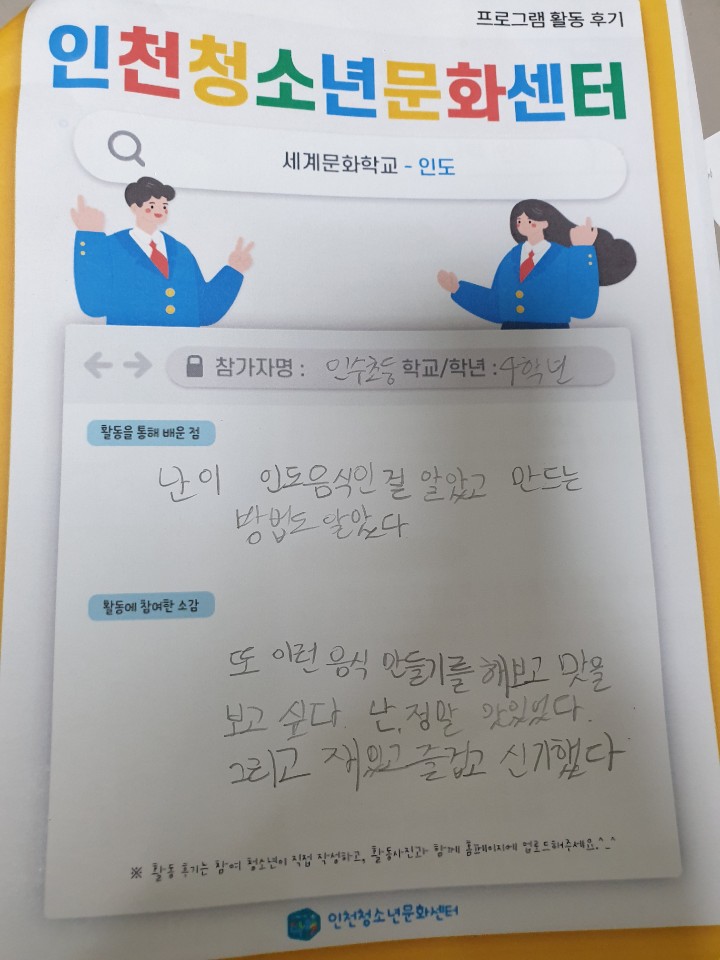 프로그램 활동 후기
인천청소년문화센터
세계문화학교 - 인도
참가자명 : 인수초등 학교/학년 : 4학년
활동을 통해 배운 점
난이 인도음식인 걸 알았고 만드는
방법도 알았다
활동에 참여한 소감
또 이런 음식 만들기를 해보고 맛을
보고 싶다. 난, 정말 맛있었다.
그리고 재밌고 즐겁고 신기했다
※ 활동 후기는 참여 청소년이 직접 작성하고, 활동사진과 함께 홈페이지에 업로드해주세요.^_^
인천청소년문화센터